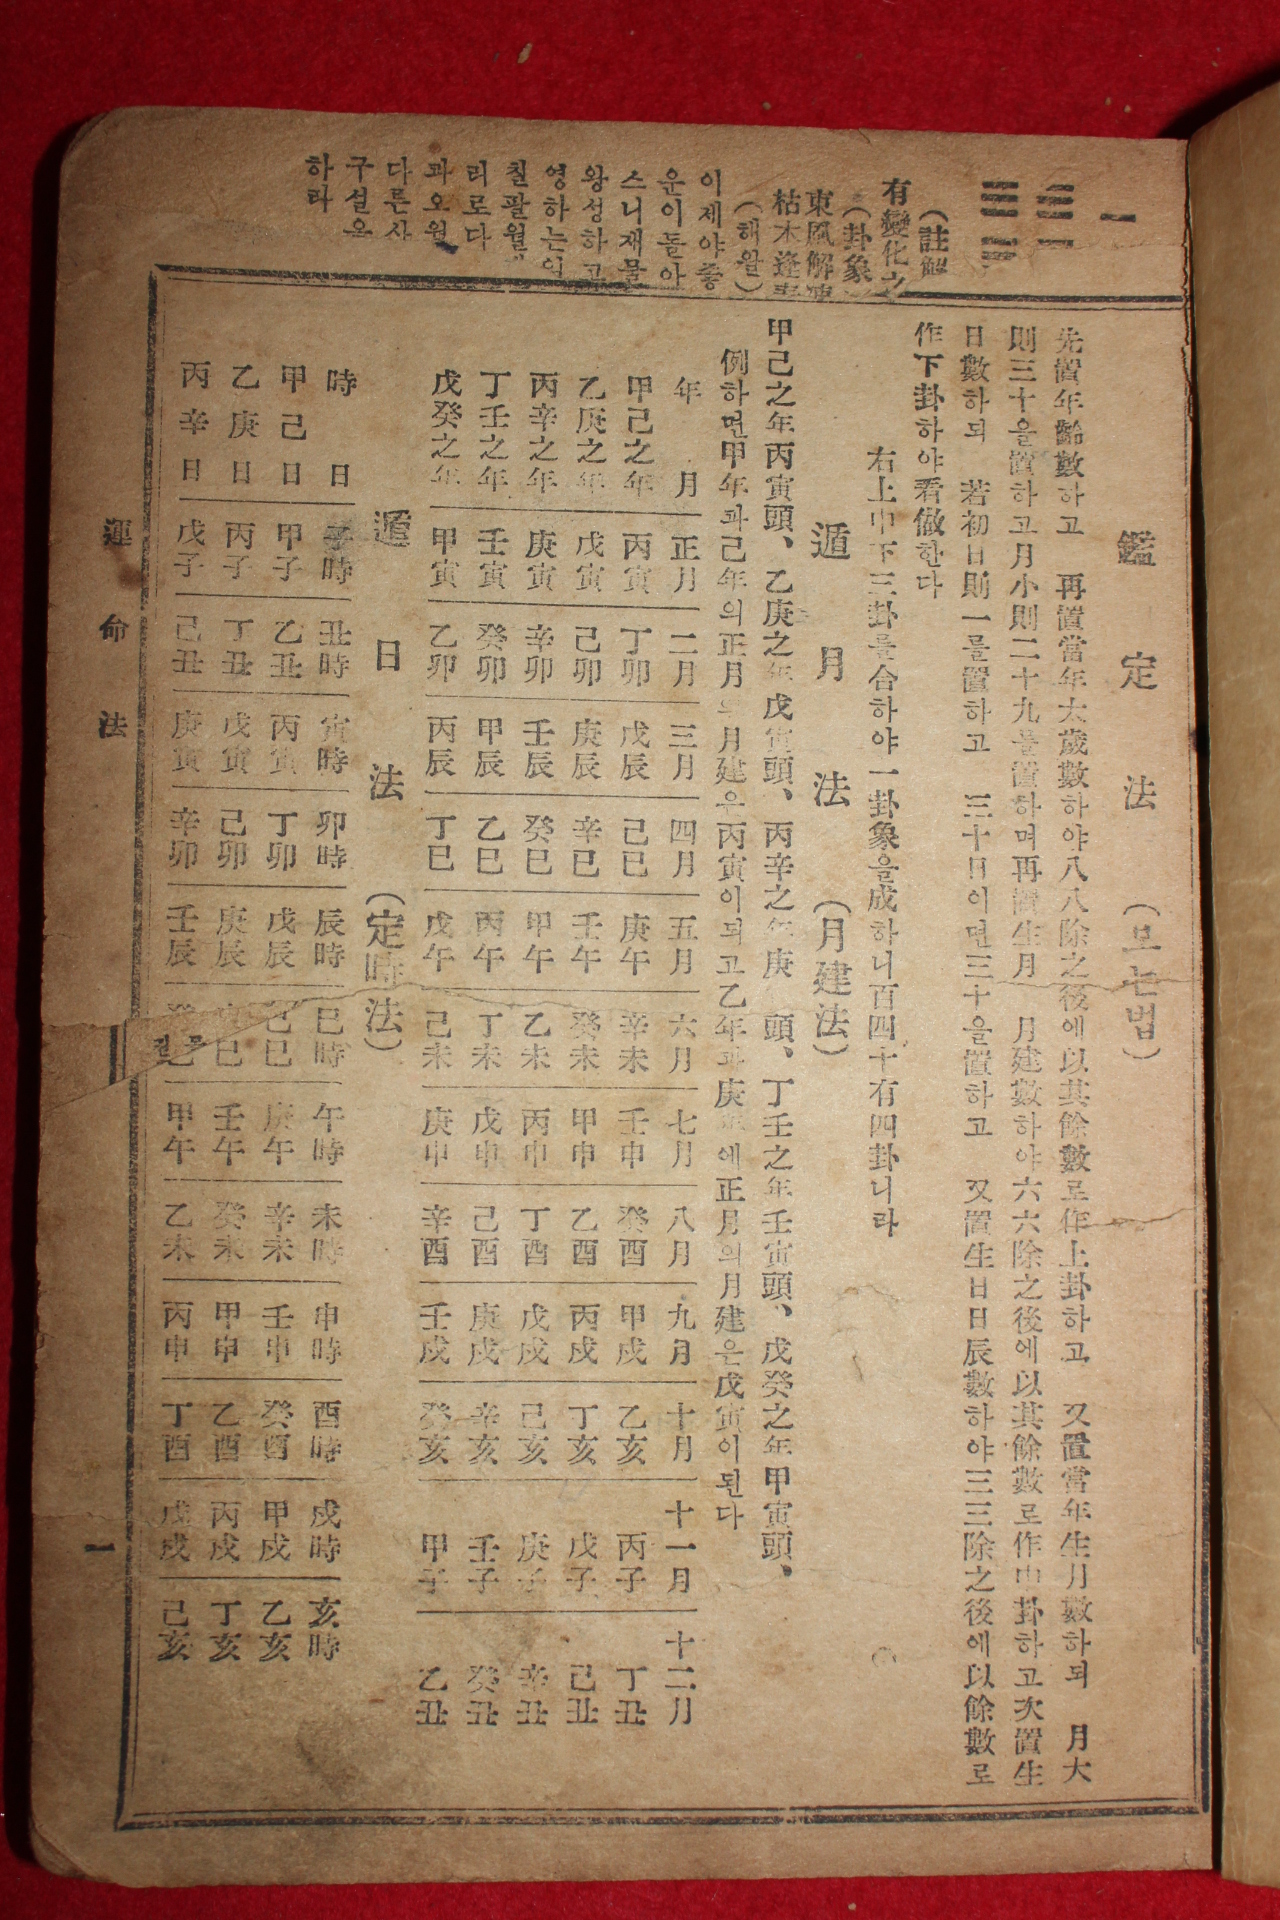 一
有變化之
(註解
(卦象
東風解凍
枯木逢春
(해왈)
이제야종
운이돌아
스니재물
왕성하고
영하는
칠팔월
리로다
과오월
다른사
구설을
하라
鑑定法 (보는법)
先置年齡數하고 再置當年太歲數하야八八除之後에以其餘數로作上卦하고 又置當年生月數하되 月大
則三十을置하고月小則二十九를置하며再置生月 月建數하야六六除之後에以其餘數로作中卦하고次置生
日數하되 若初日則一를置하고 三十日이면三十을置하고 又置生日日辰數하야三三除之後에以餘數로
作下卦하야看做한다
右上中下三卦를合하야一卦象을成하니百四十有四卦니라
遁月法 (月建法)
甲己之年丙寅頭、乙庚之年戊寅頭、丙辛之年庚 頭、丁壬之年壬寅頭、戊癸之年甲寅頭、
例하면甲年과己年의正月 月建은丙寅이되고乙年과庚年에正月의月建은戊寅이된다
年 月 正月 二月 三月 四月 五月 六月 七月 八月 九月 十月 十一月 十二月
甲己之年 丙寅 丁卯 戊辰 己巳 庚午 辛未 壬申 癸酉 甲戌 乙亥 丙子 丁丑
乙庚之年 戊寅 己卯 庚辰 辛巳 壬午 癸未 甲申 乙酉 丙戌 丁亥 戊子 己丑
丙辛之年 庚寅 辛卯 壬辰 癸巳 甲午 乙未 丙申 丁酉 戊戌 己亥 庚子 辛丑
丁壬之年 壬寅 癸卯 甲辰 乙巳 丙午 丁未 戊申 己酉 庚戌 辛亥 壬子 癸丑
戊癸之年 甲寅 乙卯 丙辰 丁巳 戊午 己未 庚申 辛酉 壬戌 癸亥 甲子 乙丑
遁日法 (定時法)
時 日 子時 丑時 寅時 卯時 辰時 巳時 午時 未時 申時 酉時 戌時 亥時
甲己日 甲子 乙丑 丙寅 丁卯 戊辰 己巳 庚午 辛未 壬申 癸酉 甲戌 乙亥
乙庚日 丙子 丁丑 戊寅 己卯 庚辰 辛巳 壬午 癸未 甲申 乙酉 丙戌 丁亥
丙辛日 戊子 己丑 庚寅 辛卯 壬辰 癸巳 甲午 乙未 丙申 丁酉 戊戌 己亥
運命法
一